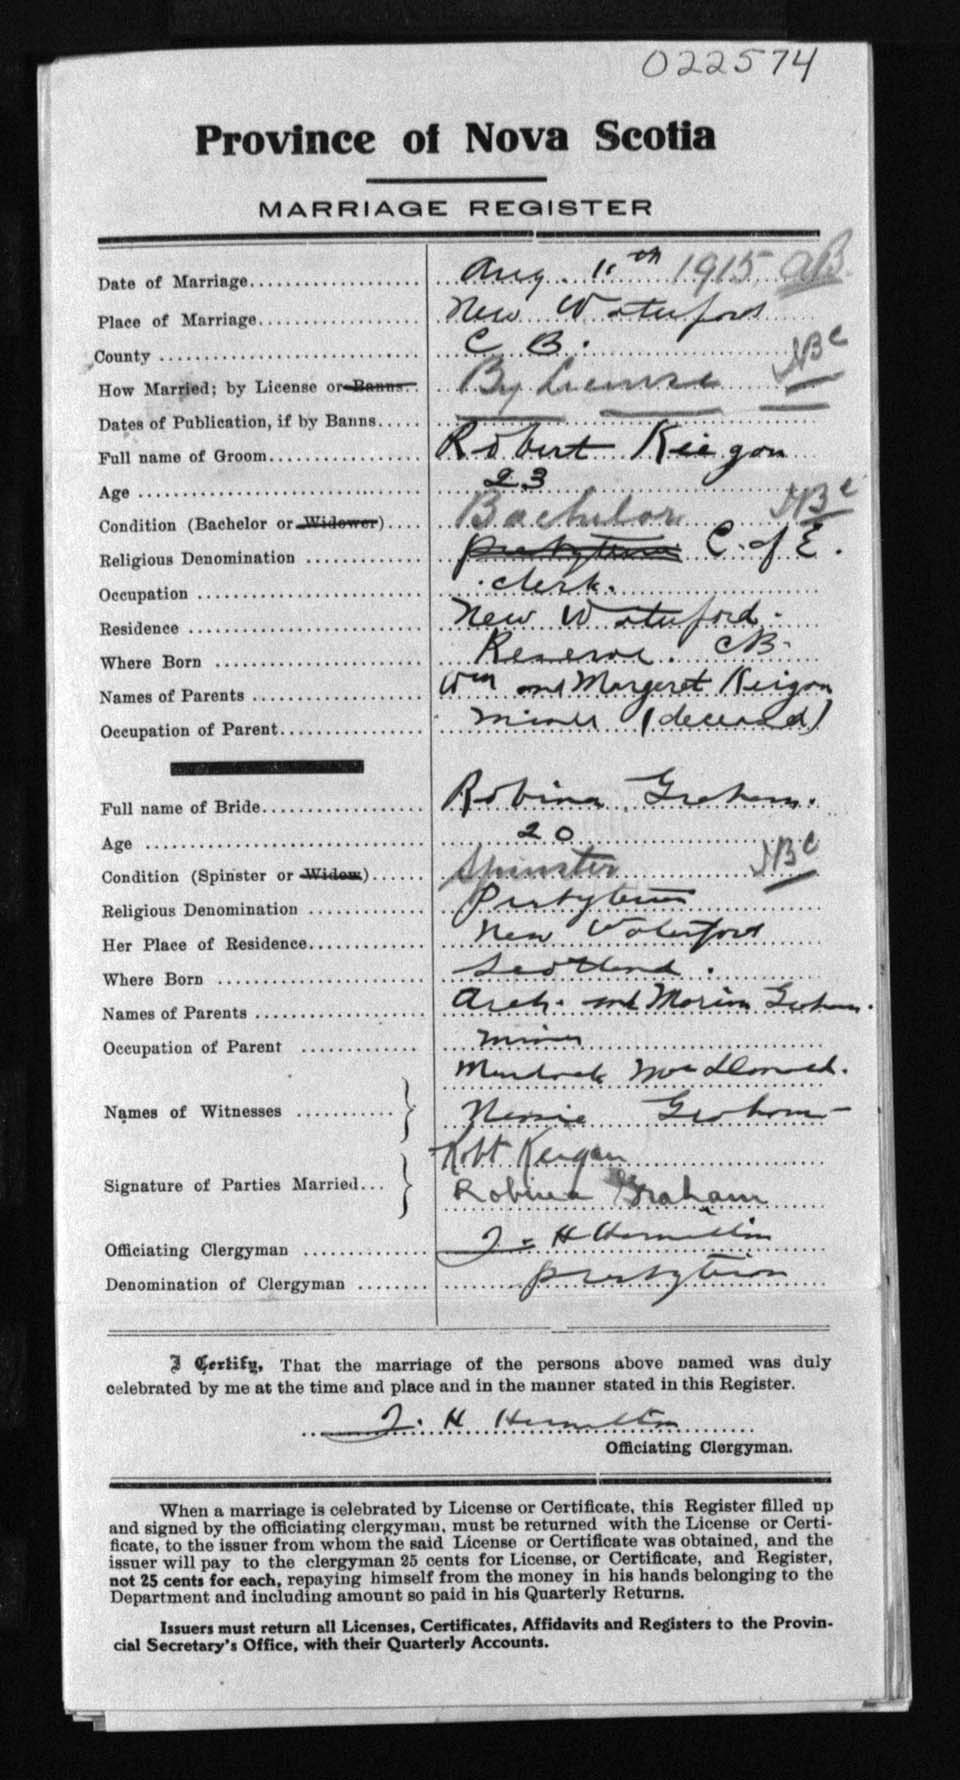 022574
Province of Nova Scotia
MARRIAGE REGISTER
Date of Marriage Aug. 1915 AB.
Place of Marriage New Waterford
County C B. NBC
How Married; by License or Banns By License
Dates of Publication, if by Banns
Full name of Groom Robert Keigan
Age 23
Condition (Bachelor or Widower) Bachelor NBC
Religious Denomination Presbyterian C. of E.
Occupation clerk.
Residence New Waterford.
Where Born Reserve. CB.
Names of Parents Wm and Margeret Keigan
Occupation of Parent Miner (deceased)
Full name of Bride Robina Graham.
Age 20
Condition (Spinster or Widow) Spinster NBC
Religious Denomination Presbyterian
Her Place of Residence New Waterford
Where Born Scotland.
Names of Parents Arch. and Marion Graham.
Occupation of Parent Miner
Murdock MacDonald.
Names of Witnesses Nessie Graham
Robt Keigan
Signature of Parties Married Robina Graham
Officiating Clergyman J. H Hamilton
Denomination of Clergyman Presbyterian
I Certify, That the marriage of the persons above named was duly
celebrated by me at the time and place and in the manner stated in this Register.
J. H Hamilton
Officiating Clergyman.
When a marriage is celebrated by License or Certificate, this Register filled up
and signed by the officiating clergyman, must be returned with the License or Certi-
ficate, to the issuer from whom the said License or Certificate was obtained, and the
issuer will pay to the clergyman 25 cents for License, or Certificate, and Register,
not 25 cents for each, repaying himself from the money in his hands belonging to the
Department and including amount so paid in his Quarterly Returns.
Issuers must return all Licenses, Certificates, Affidavits and Registers to the Provin-
cial Secretary's Office, with their Quarterly Accounts.